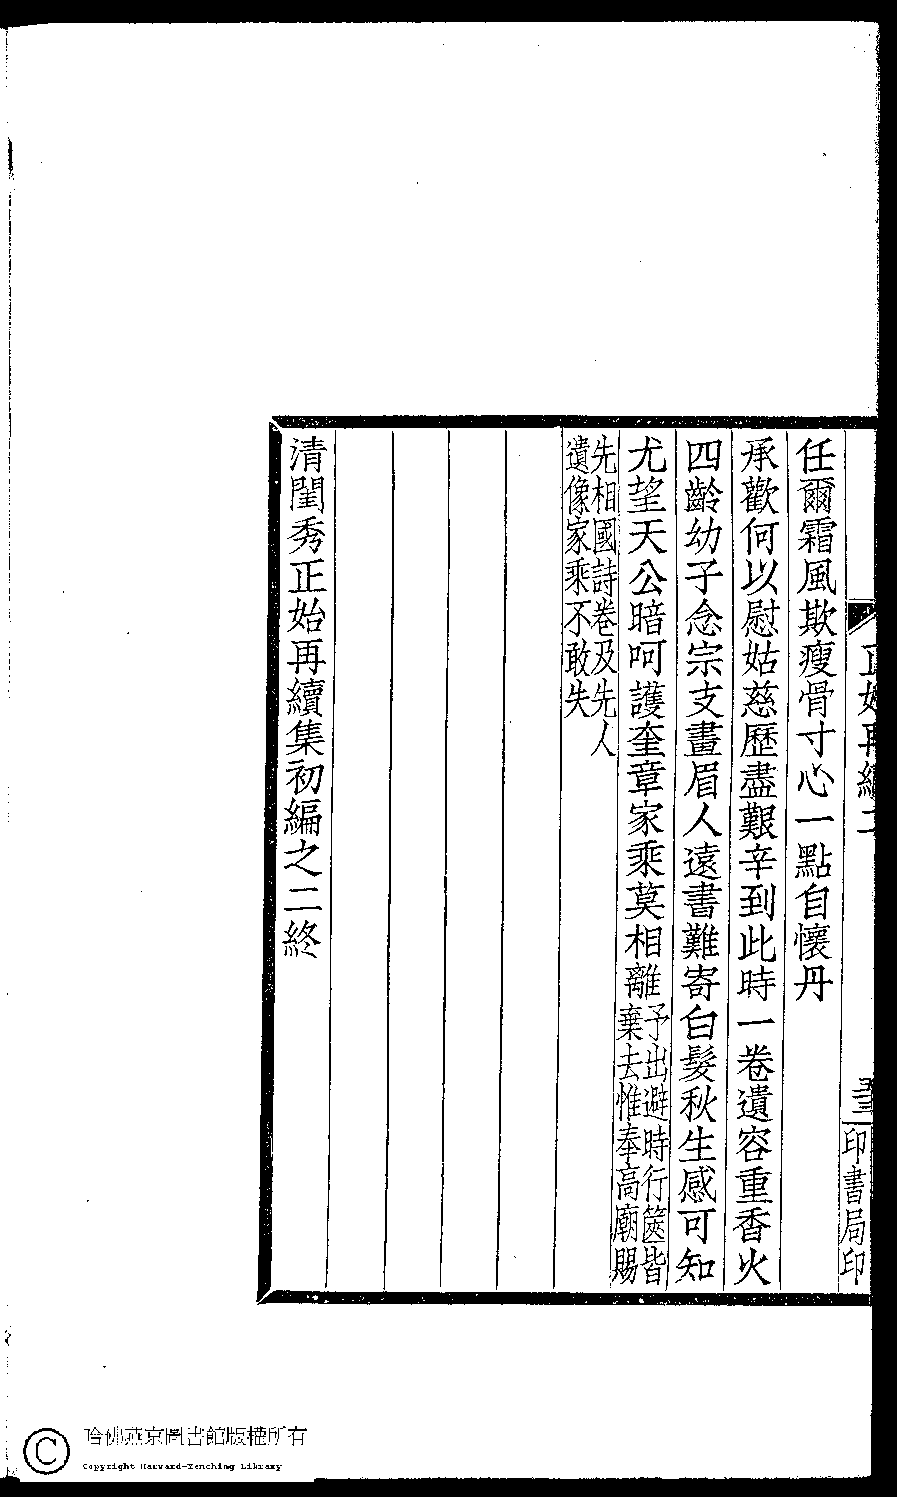 正始再續二
印書局印
任爾霜風欺瘦骨寸心一點自懷丹
承歡何以慰姑慈歷盡艱辛到此時一卷遺容重香火
四齡幼子念宗支畫眉人遠書難寄白髮秋生感可知
尤望天公暗呵護奎章家乘莫相離予出避時行篋皆棄去惟奉高廟賜
先相國詩卷及先人遺像家乘不敢失
清閨秀正始再續集初編之二終
哈佛燕京圖書館版權所有
Copyright Harvard-Yenching Library